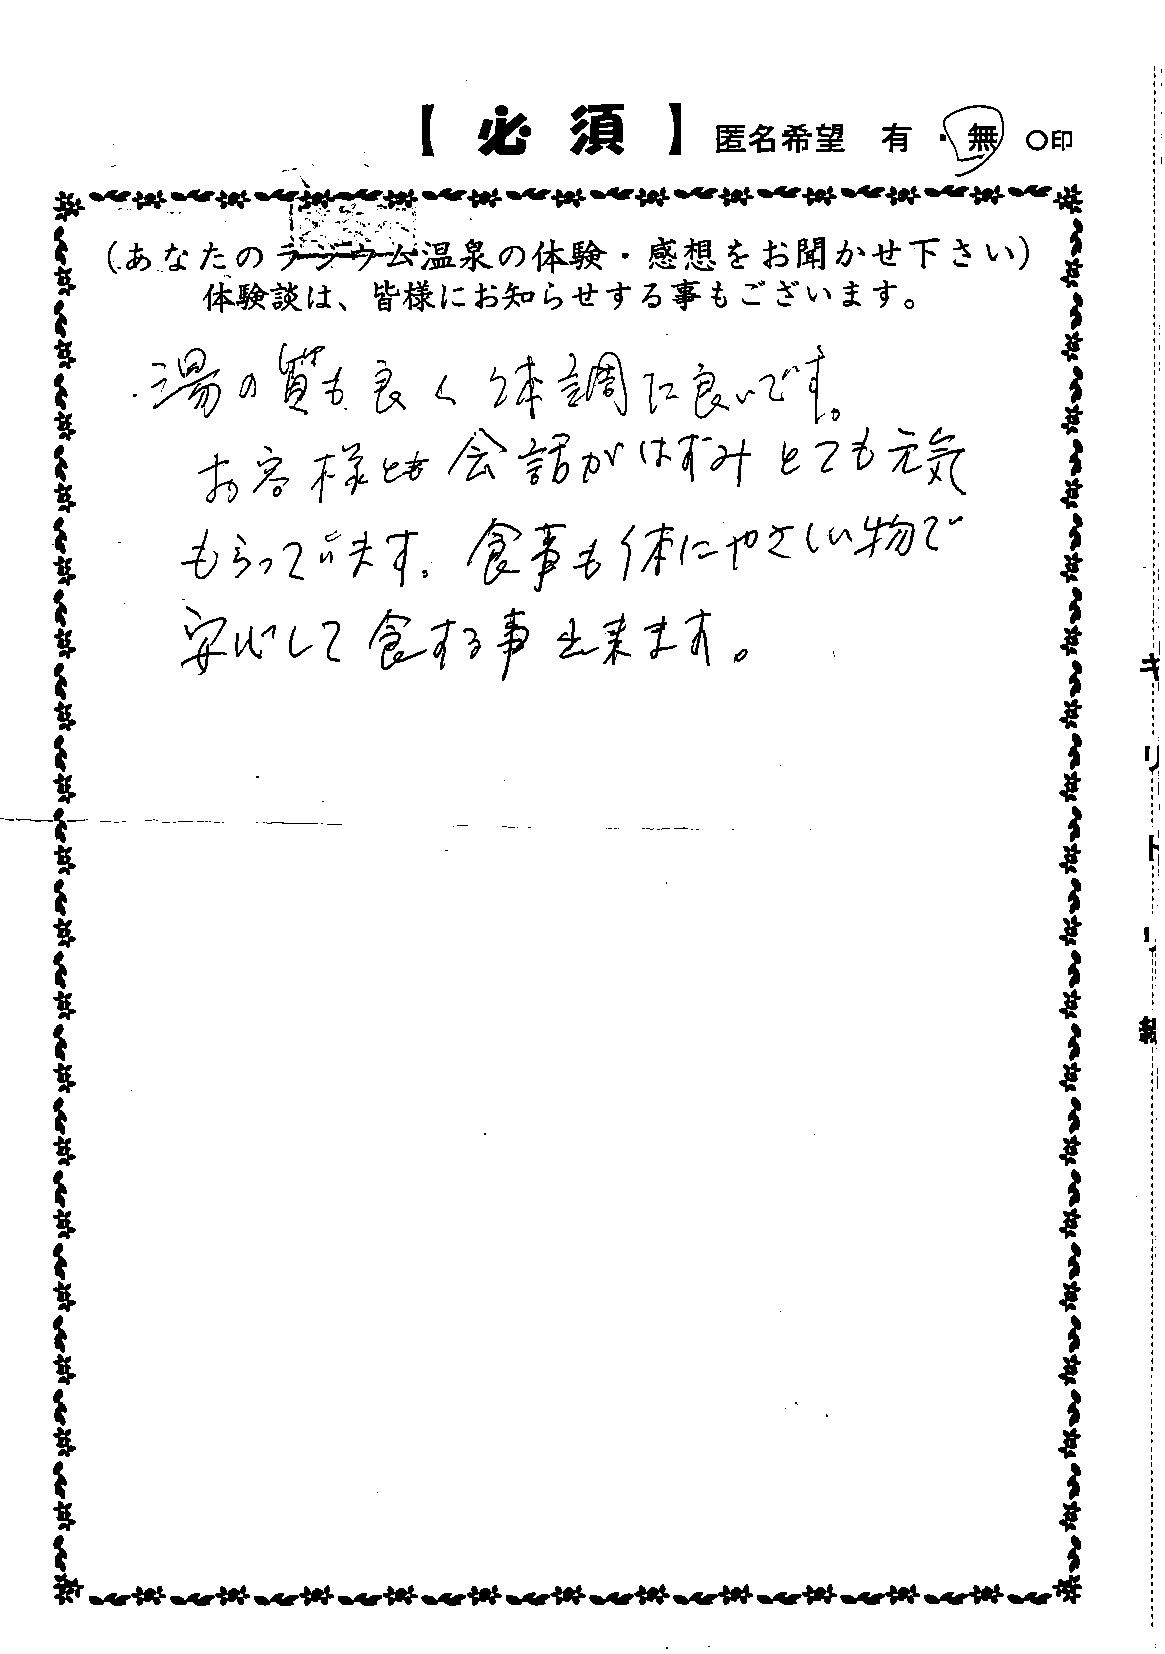 【必須】匿名希望 有・無 ○印
(あなたのラジウム温泉の体験・感想をお聞かせ下さい)
体験談は、皆様にお知らせする事もございます。
湯の質も良く体調に良いです。
お客様とも会話がはずみとても元気
もらっています。食事も体にやさしい物で
安心して食する事出来ます。
キリトリ線